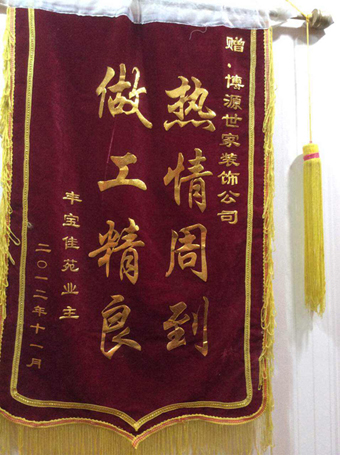 赠·博源世家装饰公司
热情周到
做工精良
丰宝佳苑业主
二〇一二年十一月